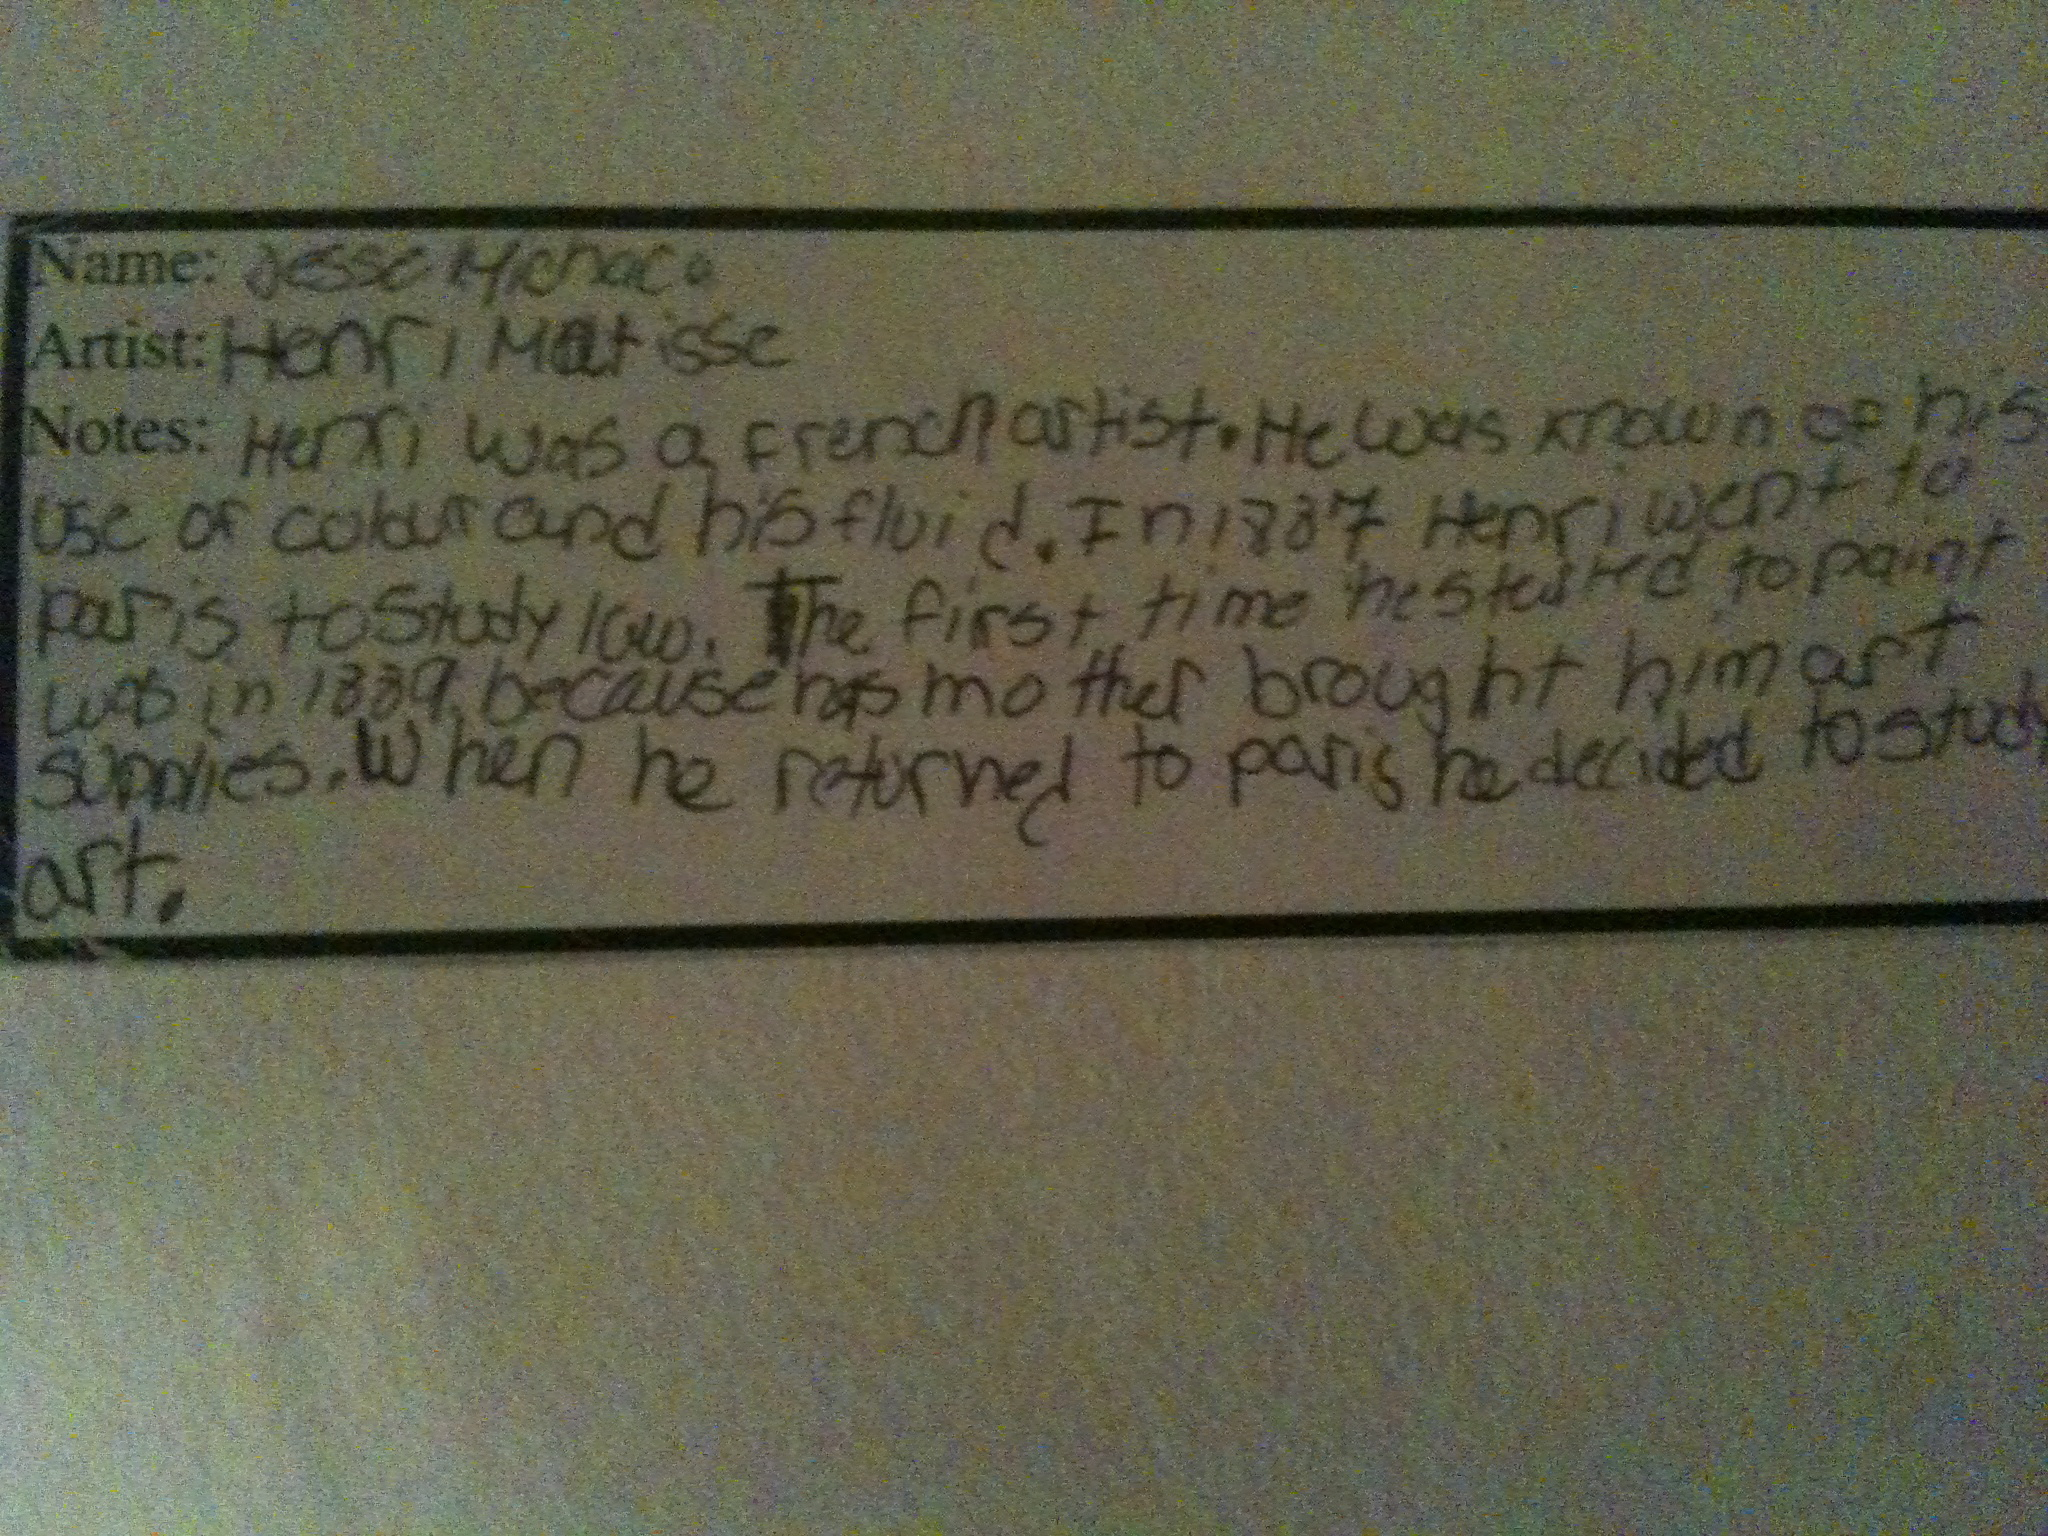 Name: Jesse
Artist: Henri Matisse
Notes: Henri was a french artist. He was known of his
use of colour and his fluid. In 1887 Henri went to
paris to study law. The first time he started to paint
was in 1889, because his mother brought him art
supplies. When he returned to paris he decided to study
art.